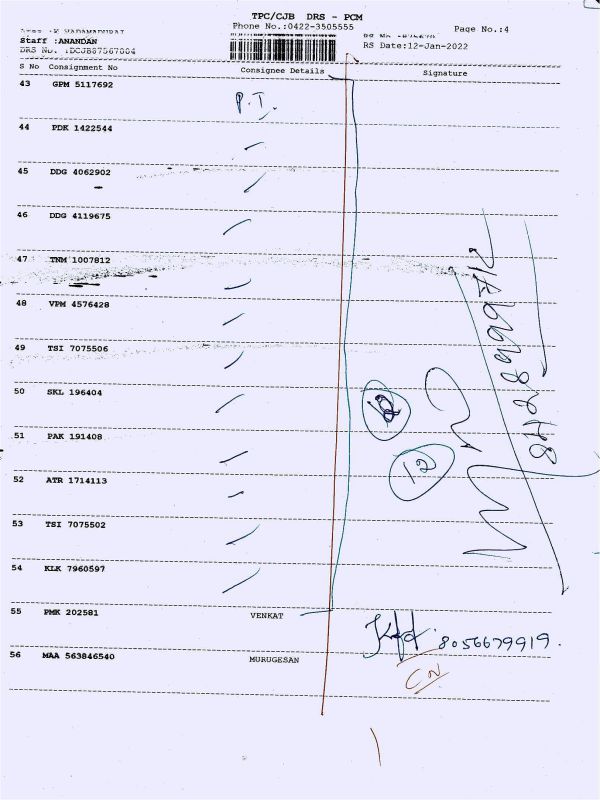 TPC/CJB DRS - PCM
Phone No.:0422-3505555 Page No.:4
Staff :ANANDAN
DRS No. :DCJB87567004 RS Date:12-Jan-2022
S No Consignment No Consignee Details Signature
43 GPM 5117692 P.T.
44 PDK 1422544
45 DDG 4062902
46 DDG 4119675
47 TNM 1007812
48 VPM 4576428
49 TSI 7075506
50 SKL 196404
51 PAK 191408
12
52 ATR 1714113
53 TSI 7075502
54 KLK 7960597
55 PMK 202581 VENKAT
8056679919.
56 MAA 563846540 MURUGESAN
CN